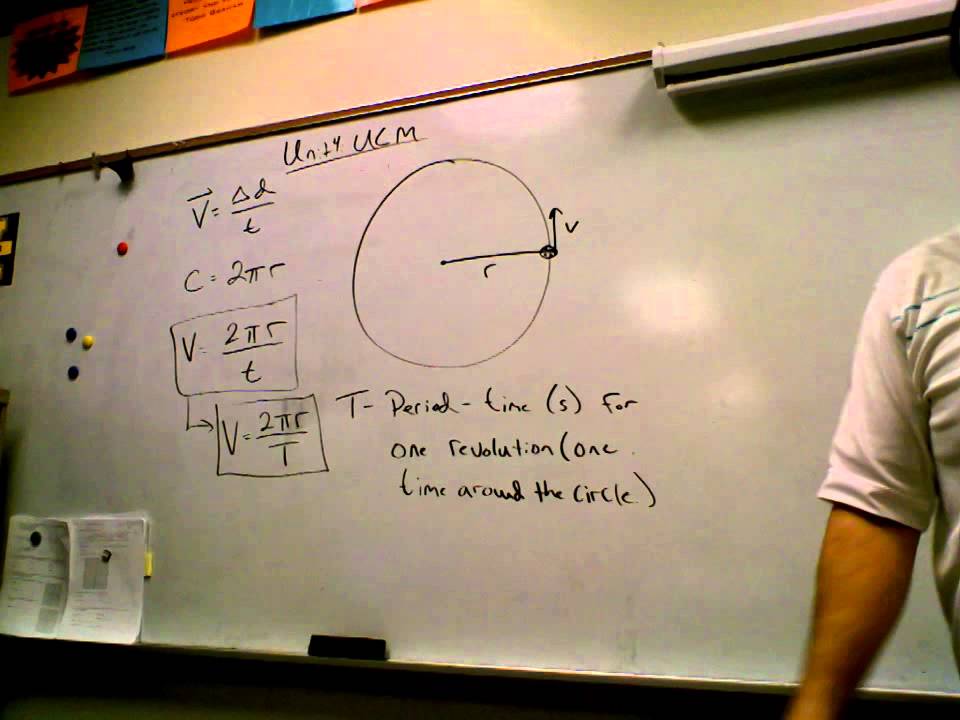 Unit 4 UCM
V = Δd / t
C = 2πr
V = 2πr / t
V = 2πr / T
r
V
T- Period - time (s) for
one revolution (one
time around the circle.)